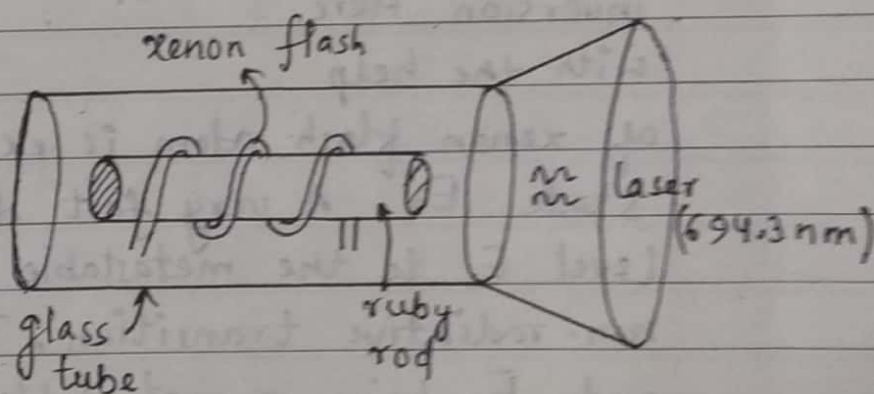 xenon flash
laser
(694.3 nm)
glass
tube
ruby
rod